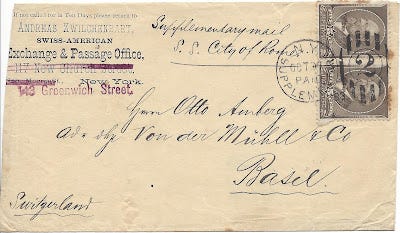 If not called for in Ten Days please return to
ANDREAS ZWILCHENBART,
SWISS-AMERICAN
Exchange & Passage Office,
117 New Church Street,
New York.
143 Greenwich Street.
Supplementary mail
S. S. City of Rome
N.Y.
OCT
PAID
SUPPLEM
2
Herrn Otto Amberg
Von der Mühll & Co
Basel.
Switzerland